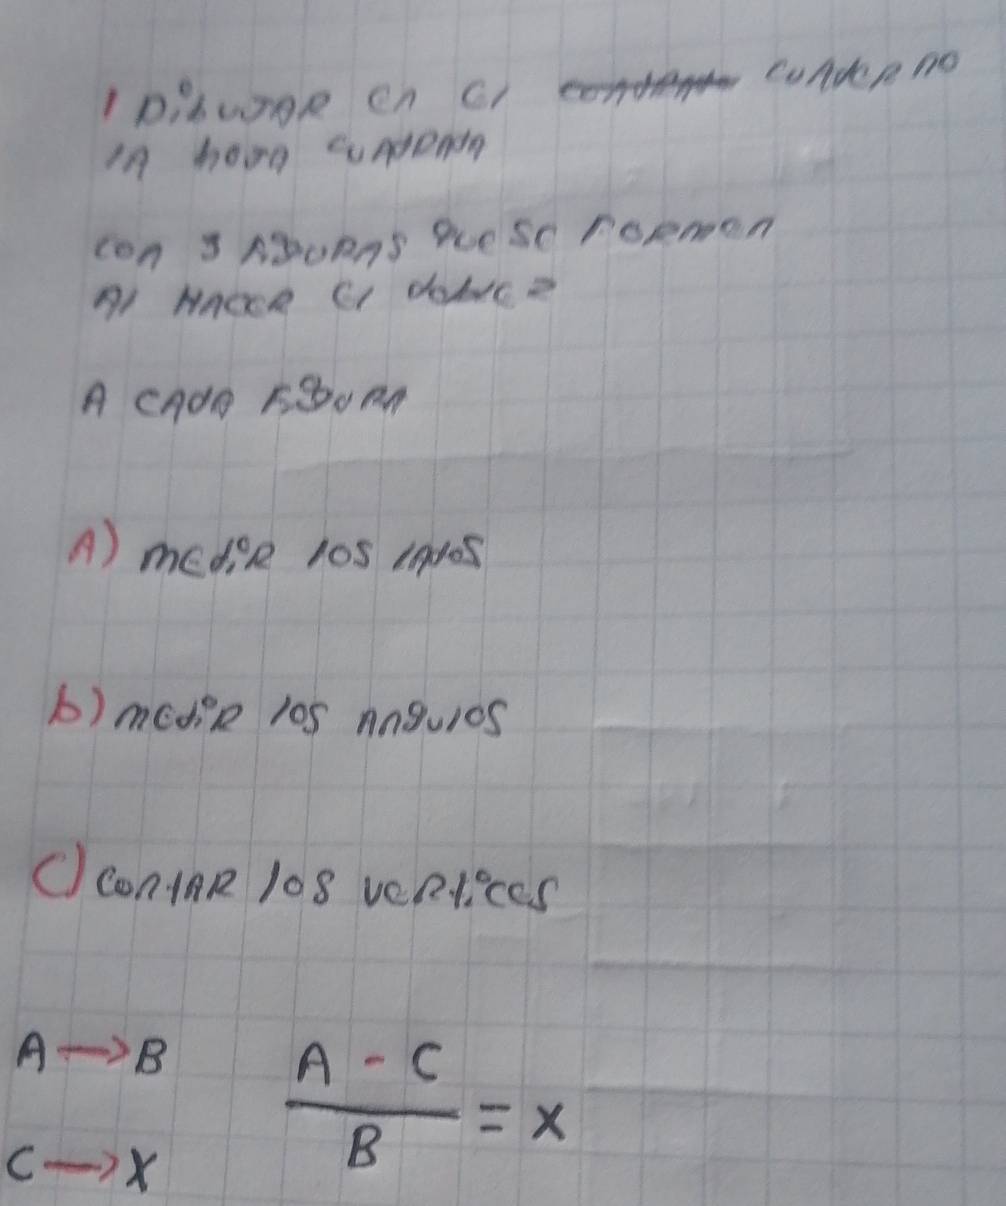 1 Dibujar en el cuaderno
la hoja cuadrada
con 3 figuras que se formen
Al HACER el doblez
A CADA figura
A) medir los lados
b) medir los angulos
C) contar los vertices
A → B
A - C
/ B = X
C → X